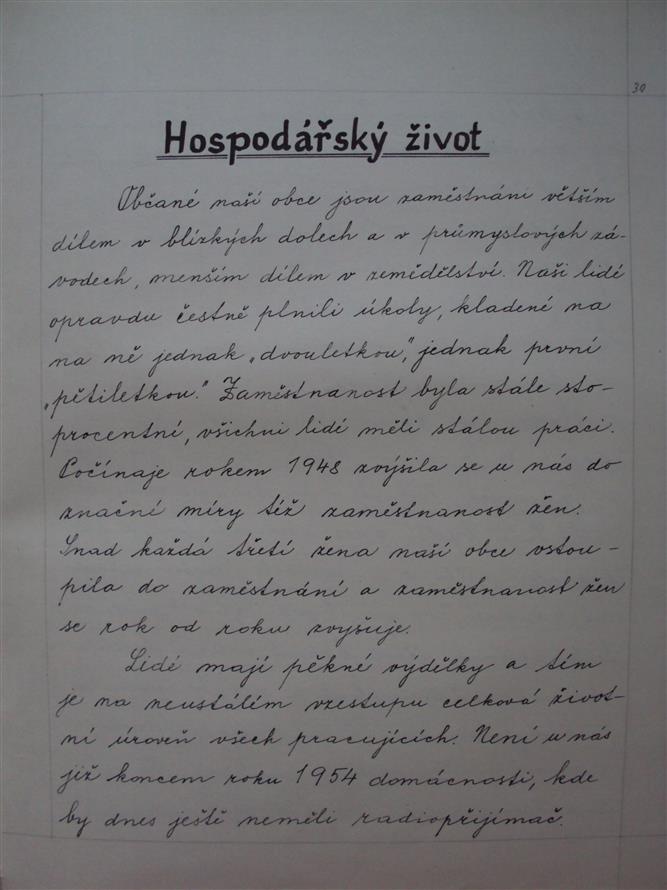 30
Hospodářský život
Občané naší obce jsou zaměstnáni větším
dílem v blízkých dolech a v průmyslových zá-
vodech, menším dílem v zemědělství. Naši lidé
opravdu čestně plnili úkoly, kladené na
na ně jednak „dvouletkou", jednak první
„pětiletkou." Zaměstnanost byla stále sto-
procentní, všichni lidé měli stálou práci.
Počínaje rokem 1948 zvýšila se u nás do
značné míry též zaměstnanost žen.
Snad každá třetí žena naší obce vstou-
pila do zaměstnání a zaměstnanost žen
se rok od roku zvyšuje.
Lidé mají pěkné výdělky a tím
je na neustálém vzestupu celková život-
ní úroveň všech pracujících. Není u nás
již koncem roku 1954 domácnosti, kde
by dnes ještě neměli radiopřijímač.